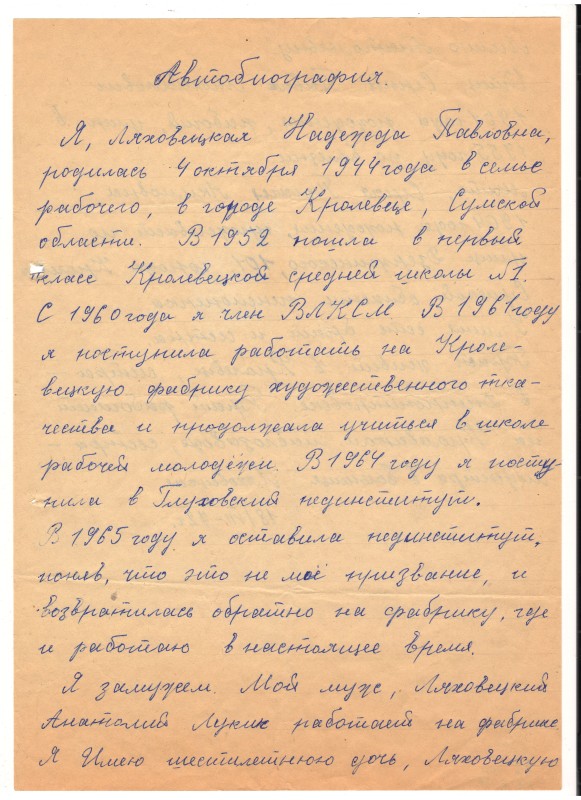 Автобиография.
Я, Ляховецкая Надежда Павловна,
родилась 4 октября 1944 года в семье
рабочего, в городе Кролевце, Сумской
области. В 1952 пошла в первый
класс Кролевецкой средней школы №1.
С 1960 года я член ВЛКСМ. В 1961 году
я поступила работать на Кроле-
вецкую фабрику художественного тка-
чества и продолжала учиться в школе
рабочей молодёжи. В 1964 году я посту-
пила в Глуховский пединститут.
В 1965 году я оставила пединститут,
поняв, что это не моё призвание, и
возвратилась обратно на фабрику, где
и работаю в настоящее время.
Я замужем. Мой муж, Ляховецкий
Анатолий Лукич работает на фабрике.
Я Имею шестилетнюю дочь, Ляховецкую